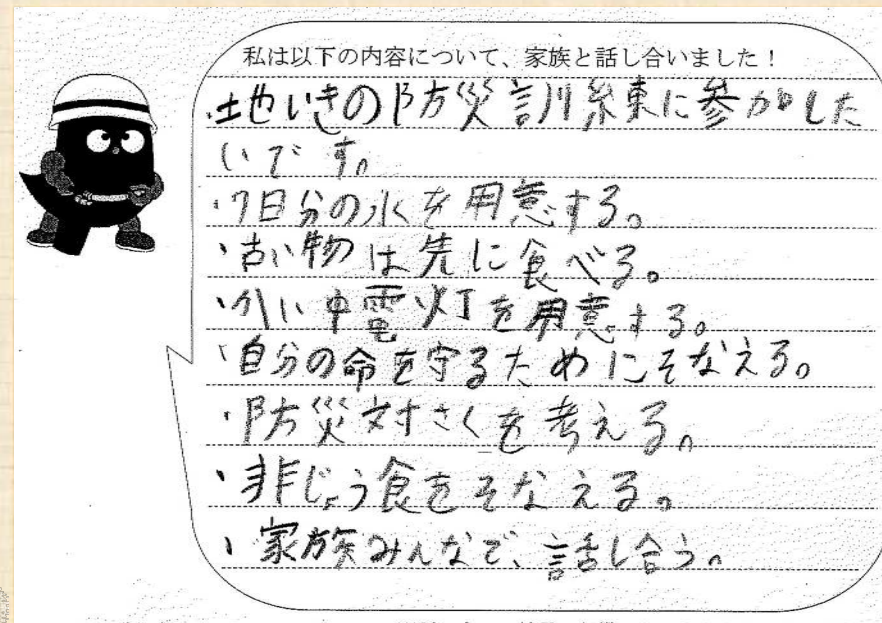 私は以下の内容について、家族と話し合いました！
・地いきの防災訓練に参加した
いです。
・7日分の水を用意する。
・古い物は先に食べる。
・かい中電灯を用意する。
・自分の命を守るためにそなえる。
・防災対さくを考える。
・非じょう食をそなえる。
・家族みんなで、話し合う。